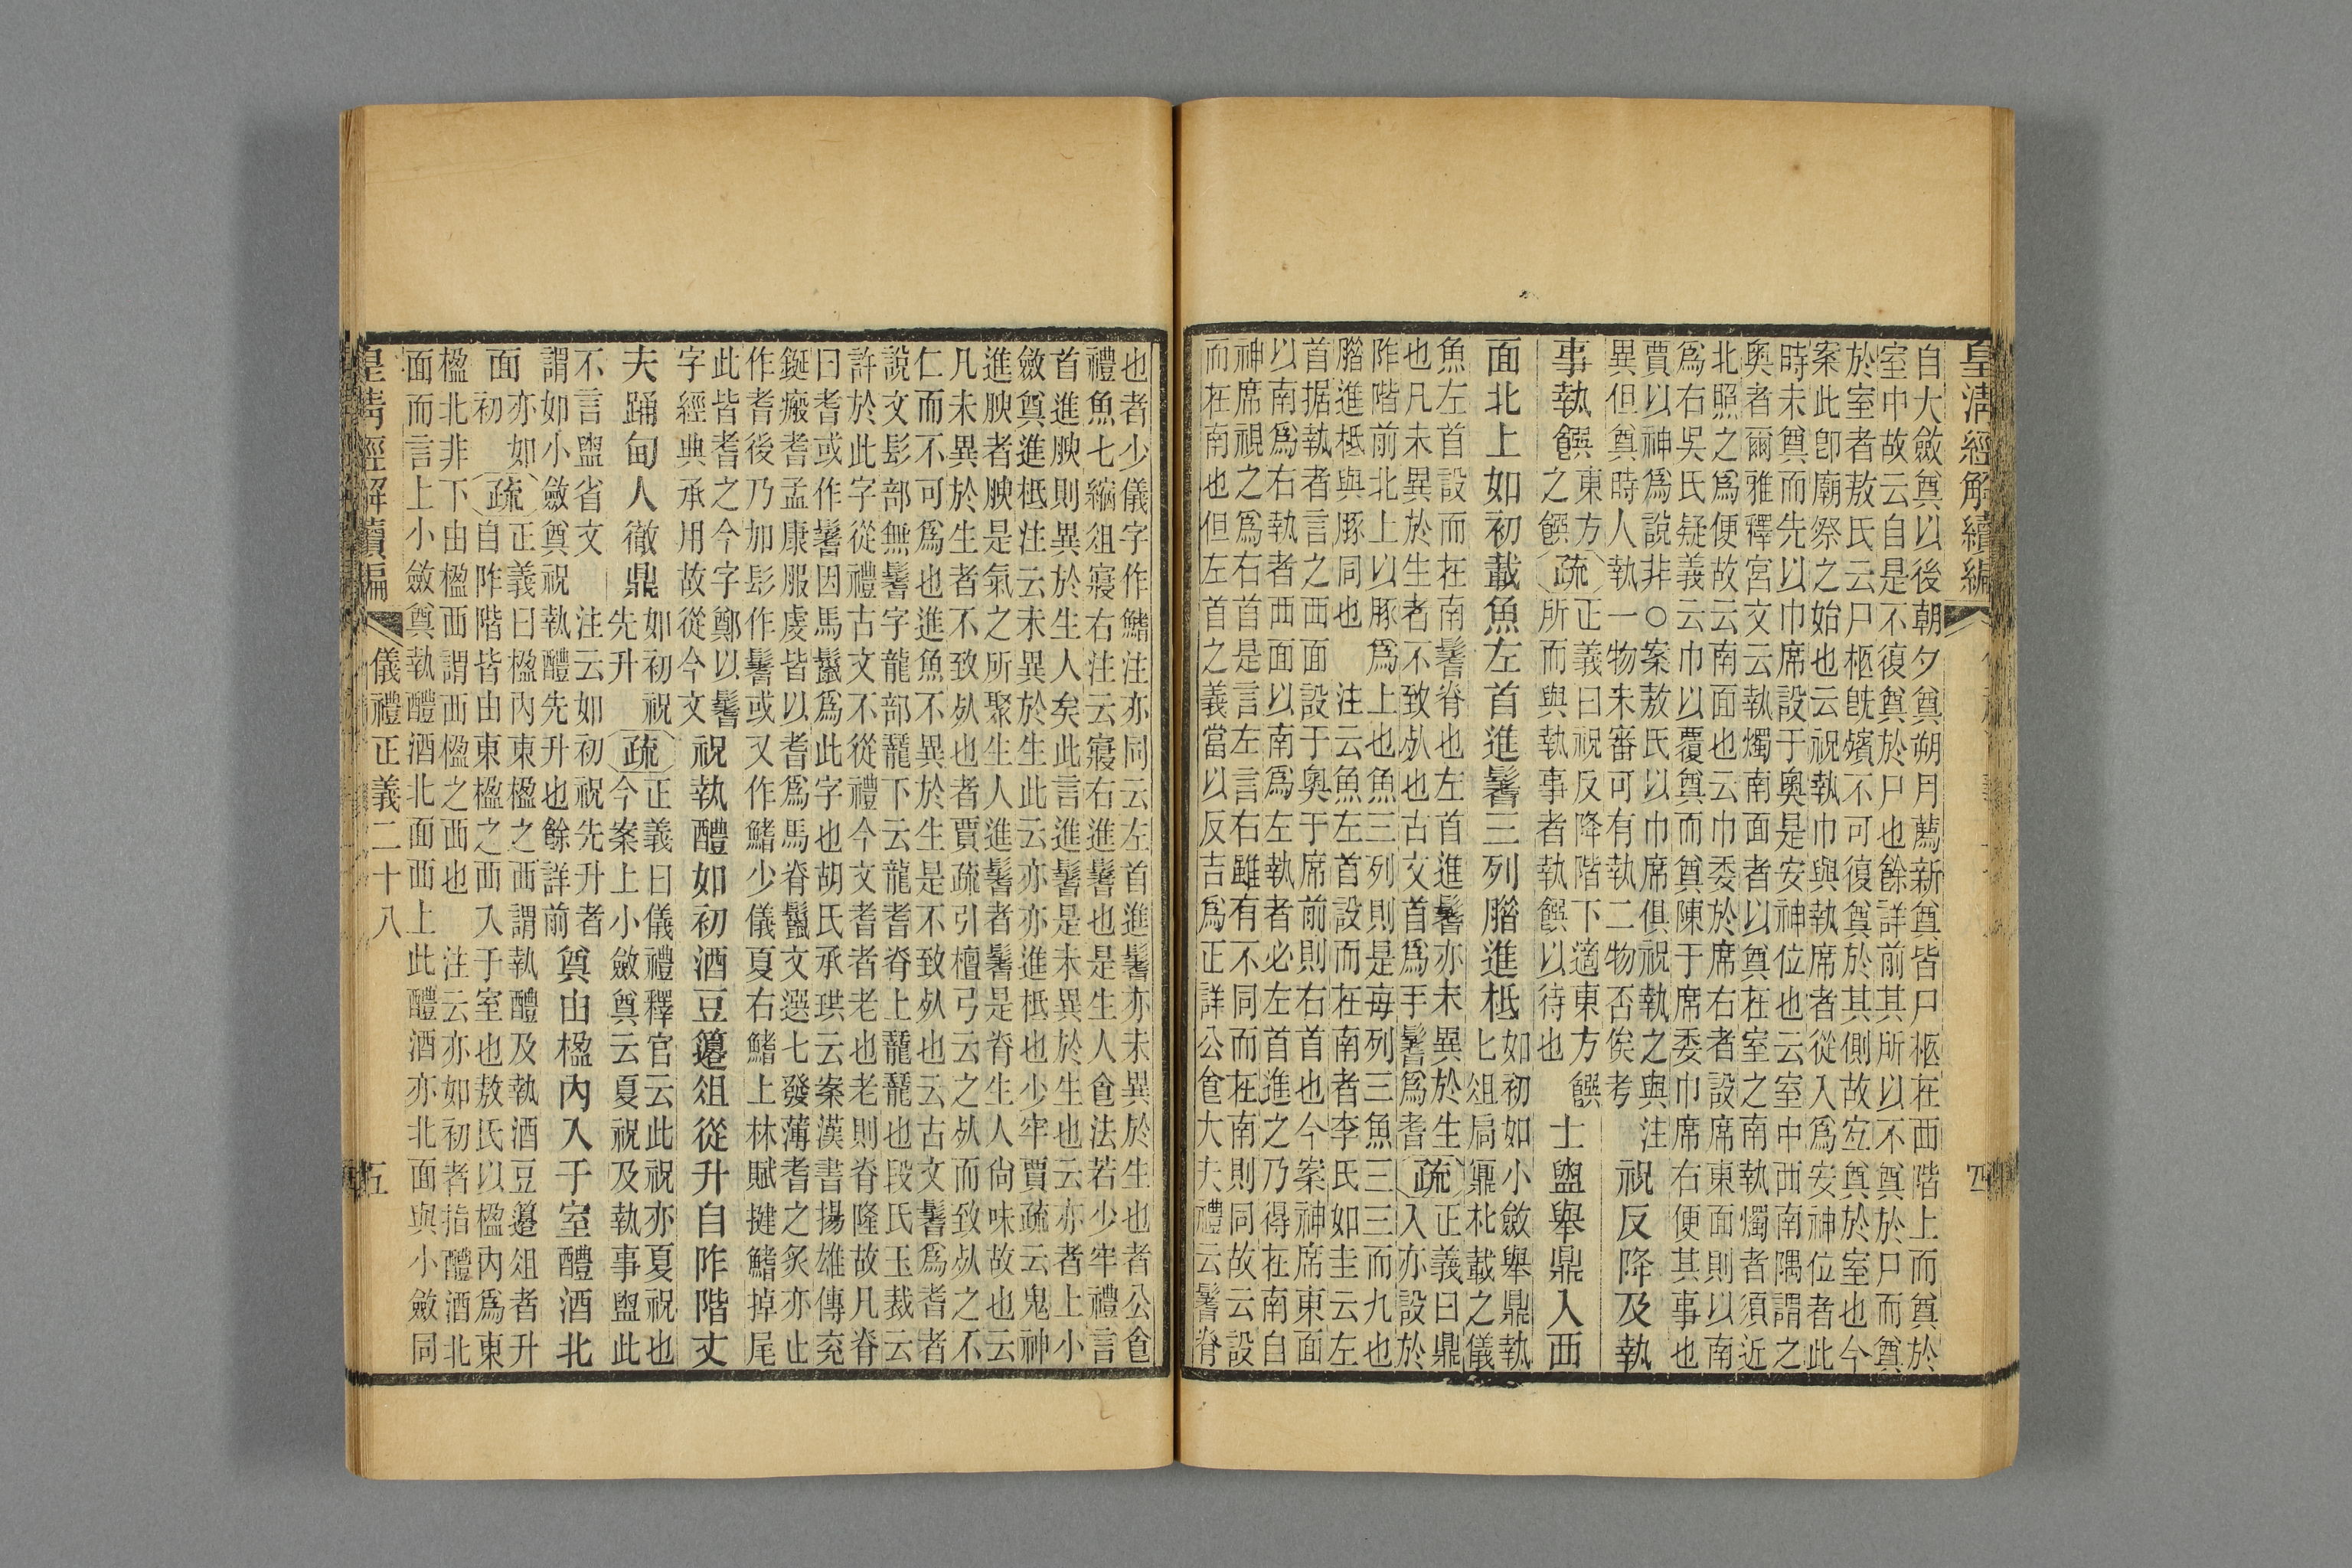 皇清經解續編
自大斂奠以後朝夕奠朔月薦新奠皆尸柩在西階上而奠於
室中故云自是不復奠於尸也餘詳前其所以不奠於尸而奠
於室者敖氏云尸柩旣殯不可復奠於其側故宐奠於室也今
案此卽廟祭之始也云祝執巾與執席者從入爲安神位者此
時未奠而先以巾席設于奧是安神位也云室中西南隅謂之
奧者爾雅釋宮文云執燭南面者以奠在室之南執燭者須近
北照之爲便故云南面也云巾委於席右者設席東面則以南
爲右吳氏疑義云巾以覆奠而奠陳于席委巾席右便其事也
賈以神爲說非○案敖氏以巾席俱祝執之與注
異但奠時人執一物未審可有執二物否俟考
祝反降及執
事執饌
東方
之饌
疏
正義曰祝反降階下適東方饌
所而與執事者執饌以待也
士盥舉鼎入西
面北上如初載魚左首進鬐三列腊進柢
如初如小斂舉鼎執
匕俎扃鼏朼載之儀
魚左首設而在南鬐脊也左首進鬐亦未異於生
也凡未異於生者不致死也古文首爲手鬐爲耆
疏
正義曰鼎
入亦設於
阼階前北上以豚爲上也魚三列則是每列三魚三三而九也
腊進柢與豚同也 注云魚左首設而在南者李氏如圭云左
首据執者言之西面設于奧于席前則右首也今案神席東面
以南爲右執者西面以南爲左執者必左首進之乃得在南自
神席視之爲右首是言左言右雖有不同而在南則同故云設
而在南也但左首之義當以反吉爲正詳公食大夫禮云鬐脊
也者少儀字作鰭注亦同云左首進鬐亦未異於生也者公食
禮魚七縮俎寢右注云寢右進鬐也是生人食法若少牢禮言
首進腴則異於生人矣此言進鬐是未異於生也云亦者上小
斂奠進柢注云未異於生此云亦亦進柢也少牢賈疏云鬼神
進腴者腴是氣之所聚生人進鬐者鬐是脊生人尙味故也云
凡未異於生者不致死也者賈疏引檀弓云之死而致死之不
仁而不可爲也進魚不異於生是不致死也云古文鬐爲耆者
說文髟部無鬐字龍部龖下云龍耆脊上龖龖也段氏玉裁云
許於此字從禮古文不從禮今文耆者老也老則脊隆故凡脊
曰耆或作鬐因馬鬣爲此字也胡氏承珙云案漢書揚雄傳兗
鋋瘢耆孟康服虔皆以耆爲馬脊鬣文選七發薄耆之炙亦止
作耆後乃加髟作鬐或又作鰭少儀夏右鰭上林賦揵鰭掉尾
此皆耆之今字鄭以鬐
字經典承用故從今文
祝執醴如初酒豆籩俎從升自阼階丈
夫踊甸人徹鼎
如初祝
先升
疏
正義曰儀禮釋官云此祝亦夏祝也
今案上小斂奠云夏祝及執事盥此
不言盥省文 注云如初祝先升者
謂如小斂奠祝執醴先升也餘詳前
奠由楹內入于室醴酒北
面
亦如
初
疏
正義曰楹內東楹之西謂執醴及執酒豆籩俎者升
自阼階皆由東楹之西入于室也敖氏以楹內爲東
楹北非下由楹西謂西楹之西也 注云亦如初者指醴酒北
面而言上小斂奠執醴酒北面西上此醴酒亦北面與小斂同
皇清經解續編 儀禮正義二十八 五